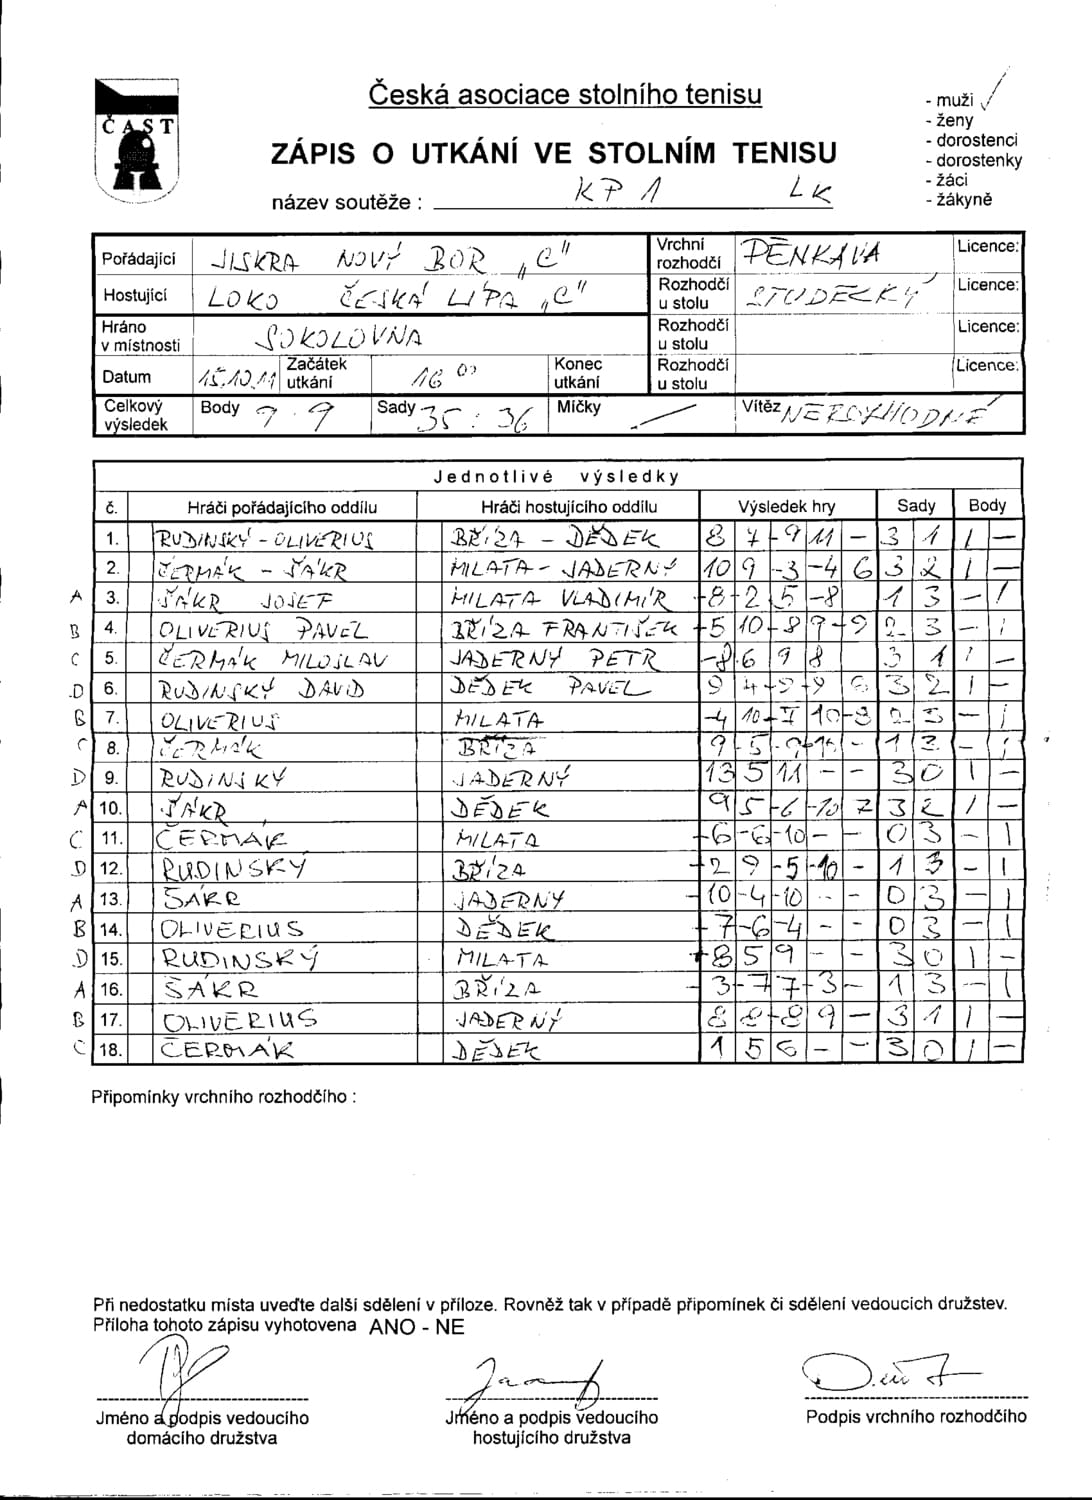 ČAST
Česká asociace stolního tenisu
ZÁPIS O UTKÁNÍ VE STOLNÍM TENISU
název soutěže : KP 1 LK
- muži
- ženy
- dorostenci
- dorostenky
- žáci
- žákyně
Pořádající JISKRA NOVÝ BOR „C" Vrchní rozhodčí PĚNKAVA Licence:
Hostující LOKO ČESKÁ LÍPA „C" Rozhodčí u stolu STUDECKÝ Licence:
Hráno v místnosti SOKOLOVNA Rozhodčí u stolu Licence:
Datum 15.10.11 Začátek utkání 16 00 Konec utkání Rozhodčí u stolu Licence:
Celkový výsledek Body 9 . 9 Sady 35 : 36 Míčky Vítěz NEROZHODNĚ
Jednotlivé výsledky
č. Hráči pořádajícího oddílu Hráči hostujícího oddílu Výsledek hry Sady Body
1. RUDINSKÝ - OLIVERIUS BŘÍZA - DĚDEK 8 7 -9 11 - 3 1 1 -
2. ČERMÁK - ŠÁKR MILATA - JADERNÝ 10 9 -3 -4 6 3 2 1 -
A 3. ŠÁKR JOSEF MILATA VLADIMÍR -8 -2 5 -8 1 3 - 1
B 4. OLIVERIUS PAVEL BŘÍZA FRANTIŠEK -5 10 -8 9 -9 2 3 - 1
C 5. ČERMÁK MILOSLAV JADERNÝ PETR -8 6 9 8 3 1 1 -
D 6. RUDINSKÝ DAVID DĚDEK PAVEL 9 4 -9 -9 8 3 2 1 -
B 7. OLIVERIUS MILATA -4 10 10 -8 2 3 - 1
C 8. ČERMÁK BŘÍZA 9 -5 -9 -10 - 1 3 - 1
D 9. RUDINSKÝ JADERNÝ 13 5 11 - - 3 0 1 -
A 10. ŠÁKR DĚDEK 9 5 -6 -10 7 3 2 1 -
C 11. ČERMÁK MILATA -6 -6 -10 - - 0 3 - 1
D 12. RUDINSKÝ BŘÍZA -2 9 -5 -10 - 1 3 - 1
A 13. ŠÁKR JADERNÝ -10 -4 -10 - - 0 3 - 1
B 14. OLIVERIUS DĚDEK -7 -6 -4 - - 0 3 - 1
D 15. RUDINSKÝ MILATA 8 5 9 - - 3 0 1 -
A 16. ŠÁKR BŘÍZA -3 -7 7 -3 - 1 3 - 1
B 17. OLIVERIUS JADERNÝ 8 8 -8 9 - 3 1 1 -
C 18. ČERMÁK DĚDEK 1 5 6 - - 3 0 1 -
Připomínky vrchního rozhodčího :
Při nedostatku místa uveďte další sdělení v příloze. Rovněž tak v případě připomínek či sdělení vedoucích družstev.
Příloha tohoto zápisu vyhotovena ANO - NE
Jméno a podpis vedoucího domácího družstva
Jméno a podpis vedoucího hostujícího družstva
Podpis vrchního rozhodčího